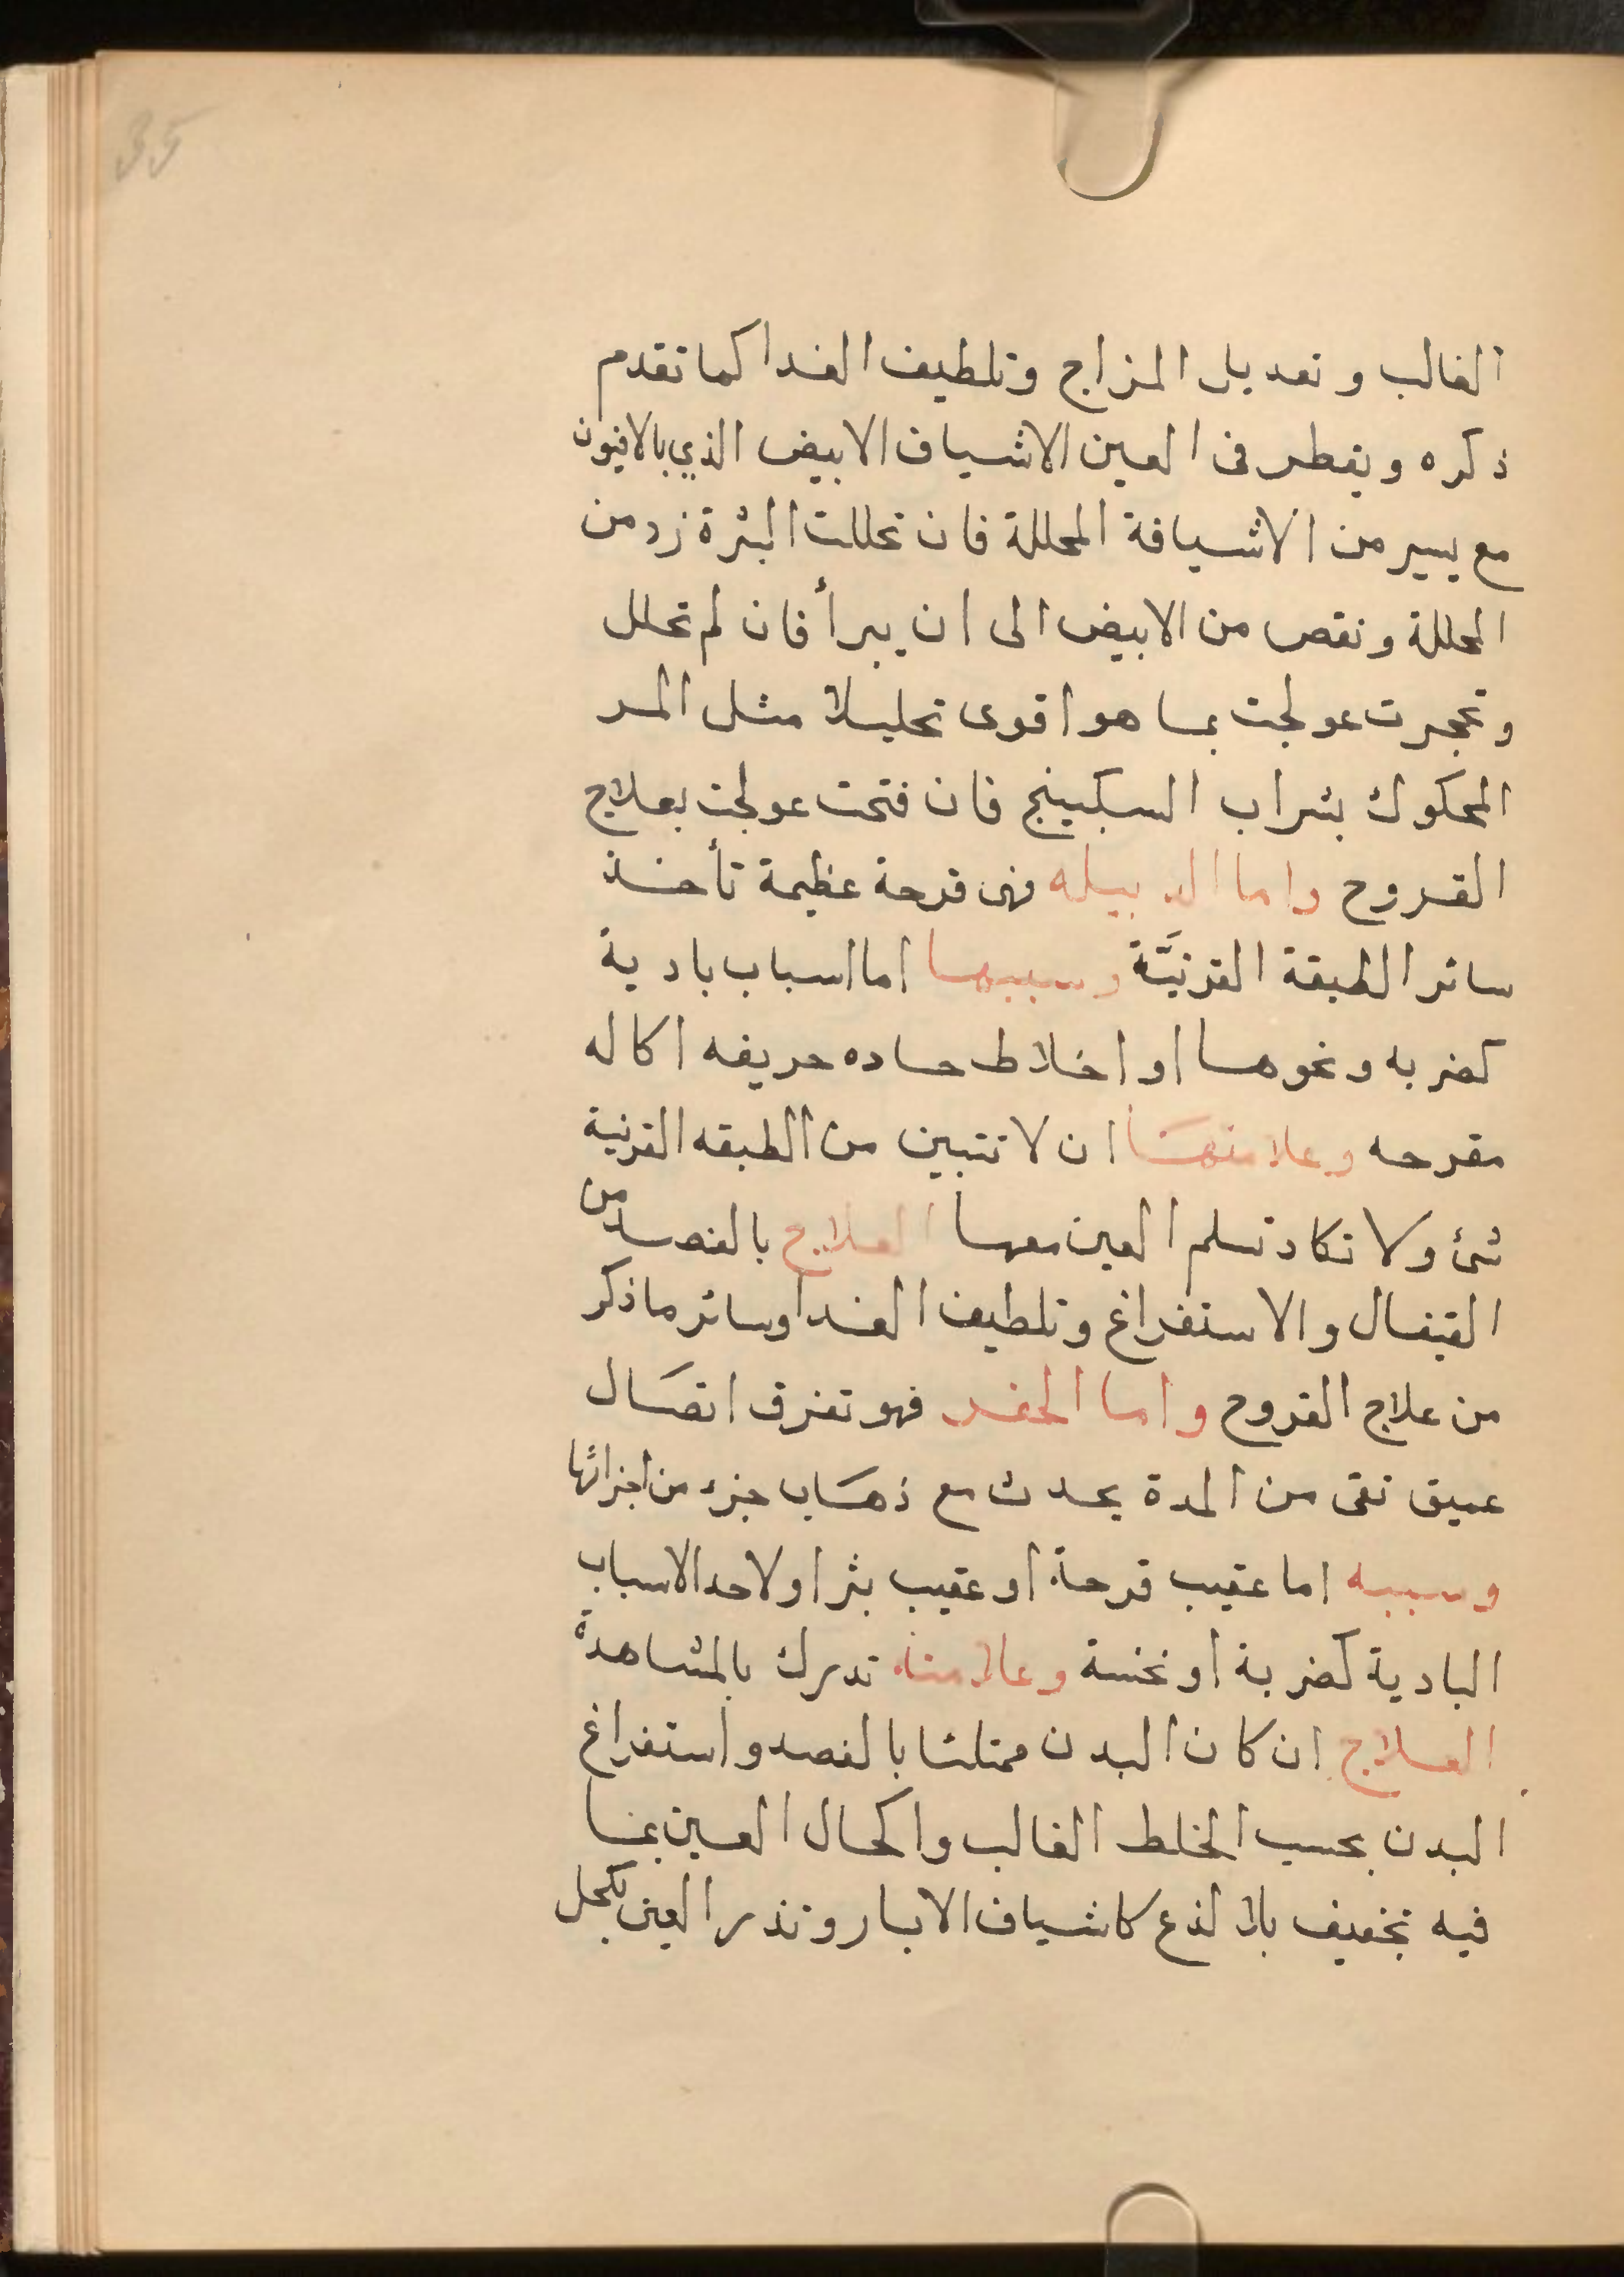 35
الغالب وتعديل المزاج وتلطيف الغدا كما تقدم
ذكره ويقطر فى العين الاشياف الابيض الذي بالافيون
مع يسير من الاشيافة المحللة فان تحللت البثرة زد من
المحللة ونقص من الابيض الى ان يبرأ فان لم تحلل
وتحجرت عولجت بما هو اقوى تحليلا مثل المر
المحكوك بشراب السكبينج فان فتحت عولجت بعلاج
القروح واما الدبيله فهى قرحة عظيمة تأخذ
سائر الطبقة القرنيَّة وسببها اما اسباب بادية
كضربه ونحوها او اخلاط حاده حريفه اكاله
مقرحه وعلامتها ان لا تتبين من الطبقه القرنية
شئ ولا تكاد تسلم العين معها العلاج بالفصد من
القيفال والاستفراغ وتلطيف الغدا وسائر ما ذكر
من علاج القروح واما الحفر فهو تفرق اتصال
عميق نقى من المدة يحدث مع ذهاب جزء من اجزائها
وسببه اما عقيب قرحة او عقيب بثر او لاحد الاسباب
البادية كضربة او نخسة وعلامته تدرك بالمشاهدة
العلاج ان كان البدن ممتلئا بالفصد واستفراغ
البدن بحسب الخلط الغالب واكحال العين بما
فيه تجفيف بلا لذع كاشياف الابار وتذر العين بكحل